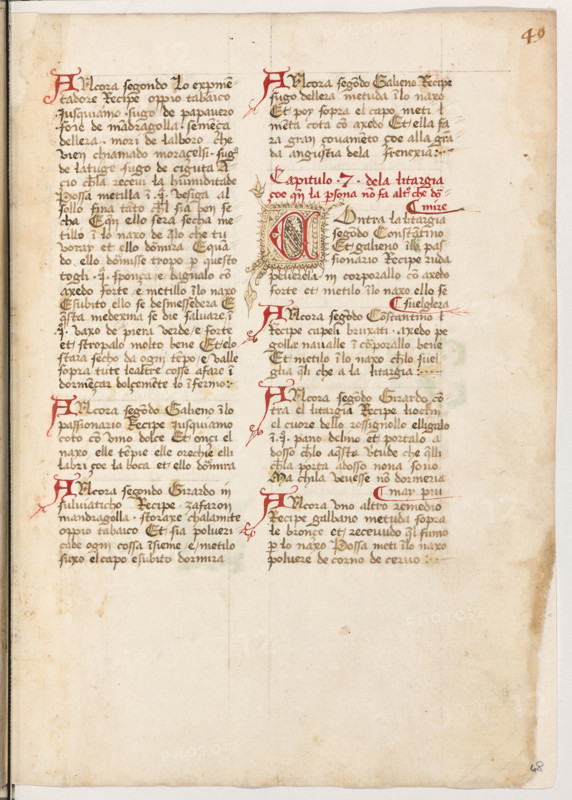 49
Ancora segondo lo expmẽ
tadore Recipe oppio tabaico
Jusquiamo · sugo de papavero
fone de madragolla · semẽça
dellera · mori de lalboro che
vien chiamado moraçelsi · sugº
de latuge sugo de ciguta A
cio chla receui la humiditade
Possa metilla ĩ · q̃ · vesiga al
sollo fina tãto chl sia pon se
cha E quãdo ello sera secha me
tillo ĩ lo naxo de llo che tu
voray et ello dõmira E quã
do ello dõmisse tropo p questo
togli · q̃ · sponça e bagnalo cõ
axedo forte e metillo ĩlo naxo
E subito ello se desmessedera E
q̃sta medexina se die saluare ĩ
· q̃ · vaxo de piera verde e forte
et stropalo molto bene Et ello
stara secho da ogni tẽpo e valle
sopra tute lealtre cosse afare ĩ
dormẽçar dolçemẽte lo ĩfermo :·
Ancora segõdo Galieno ĩlo
passionario Recipe Jusquiamo
coto cõ vino dolce Et onçi el
naxo elle tẽpie elle orechie elli
labri çoe la boca et ello dõmira
Ancora segondo Girardo in
sulviaticho Recipe · zafaron
mandragolla · storaxe chalamite
oppio tabaico Et sia polueri
çade ogni cossa ĩsieme e metilo
suxo el capo e subito dormira
Ancora segõdo Galieno Recipe
sugo dellera metuda ĩlo naxo
Et poy sopra el capo meti l
mẽta cota cõ axedo Et ella fa
ra gran çouamẽto çoe alla gra
da angustia dela frenexia :·
Capitulo · 7 · dela litargia
çoe qñ la psona nõ fa altº che dõ
mire
Contra la litargia
segõdo Constãtino
Et galieno ĩlo pas
sionario Recipe ruda
polverela in corporallo cõ axedo
forte et metilo ĩlo naxo ello se
suelglera
Ancora segõdo Costantino t
Recipe capeli bruxati · axedo pe
golla navalle ĩcorporallo bene
Et metilo ĩlo naxo chlo suel
glia q̃lli che a la litargia :·
Ancora segõdo Girardo cõ
tra el litargia Recipe li ochi
el cuore dello rossignollo elligalo
ĩ · q̃ · pano delino et portalo a
dosso chlo aq̃sta vertude che q̃lli
chla porta adosso nona sono
Ma chila veuesse nõ dormeria
may piu
Ancora uno altro remedio
Recipe galbano metuda sopra
le bronçe et receuudo q̃l fumo
p lo naxo Possa meti ĩlo naxo
poluere de corno de ceruo :·
48